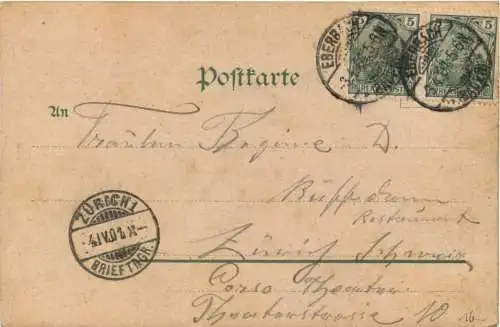 5 5
EBERBACH
Postkarte
An
Fräulein Regine D.
Büffetdame
Restaurant
ZÜRICH 1
4.IV.01
BRIEFTRGR.
Zürich Schweiz
Corso Theater
Theaterstrasse 10